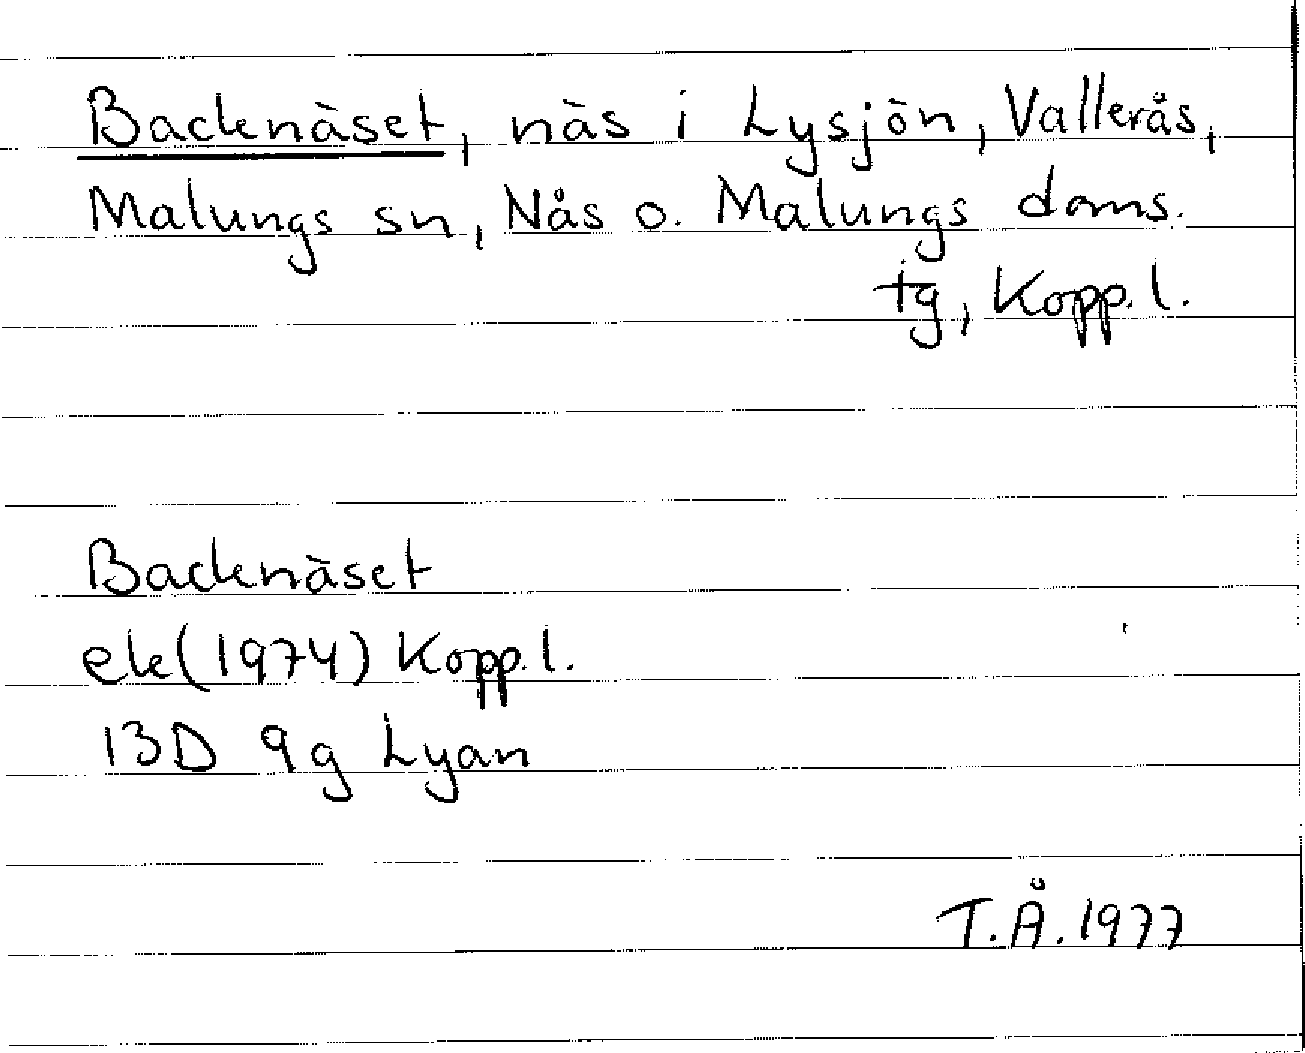 Backnäset, näs i Lysjön, Vallerås,
Malungs sn, Nås o. Malungs doms.
tg, Kopp. l.
Backnäset
ek (1974) Kopp. l.
13D 9g Lyan
T.Å. 1977